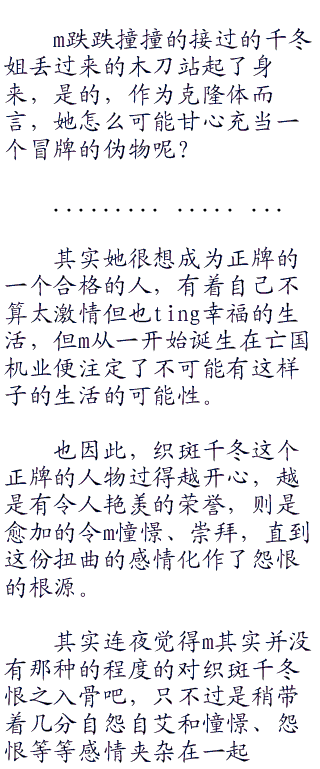 m跌跌撞撞的接过的千冬
姐丢过来的木刀站起了身
来，是的，作为克隆体而
言，她怎么可能甘心充当一
个冒牌的伪物呢？
......... ..... ...
其实她很想成为正牌的
一个合格的人，有着自己不
算太激情但也ting幸福的生
活，但m从一开始诞生在亡国
机业便注定了不可能有这样
子的生活的可能性。
也因此，织斑千冬这个
正牌的人物过得越开心，越
是有令人艳羡的荣誉，则是
愈加的令m憧憬、崇拜，直到
这份扭曲的感情化作了怨恨
的根源。
其实连夜觉得m其实并没
有那种的程度的对织斑千冬
恨之入骨吧，只不过是稍带
着几分自怨自艾和憧憬、怨
恨等等感情夹杂在一起